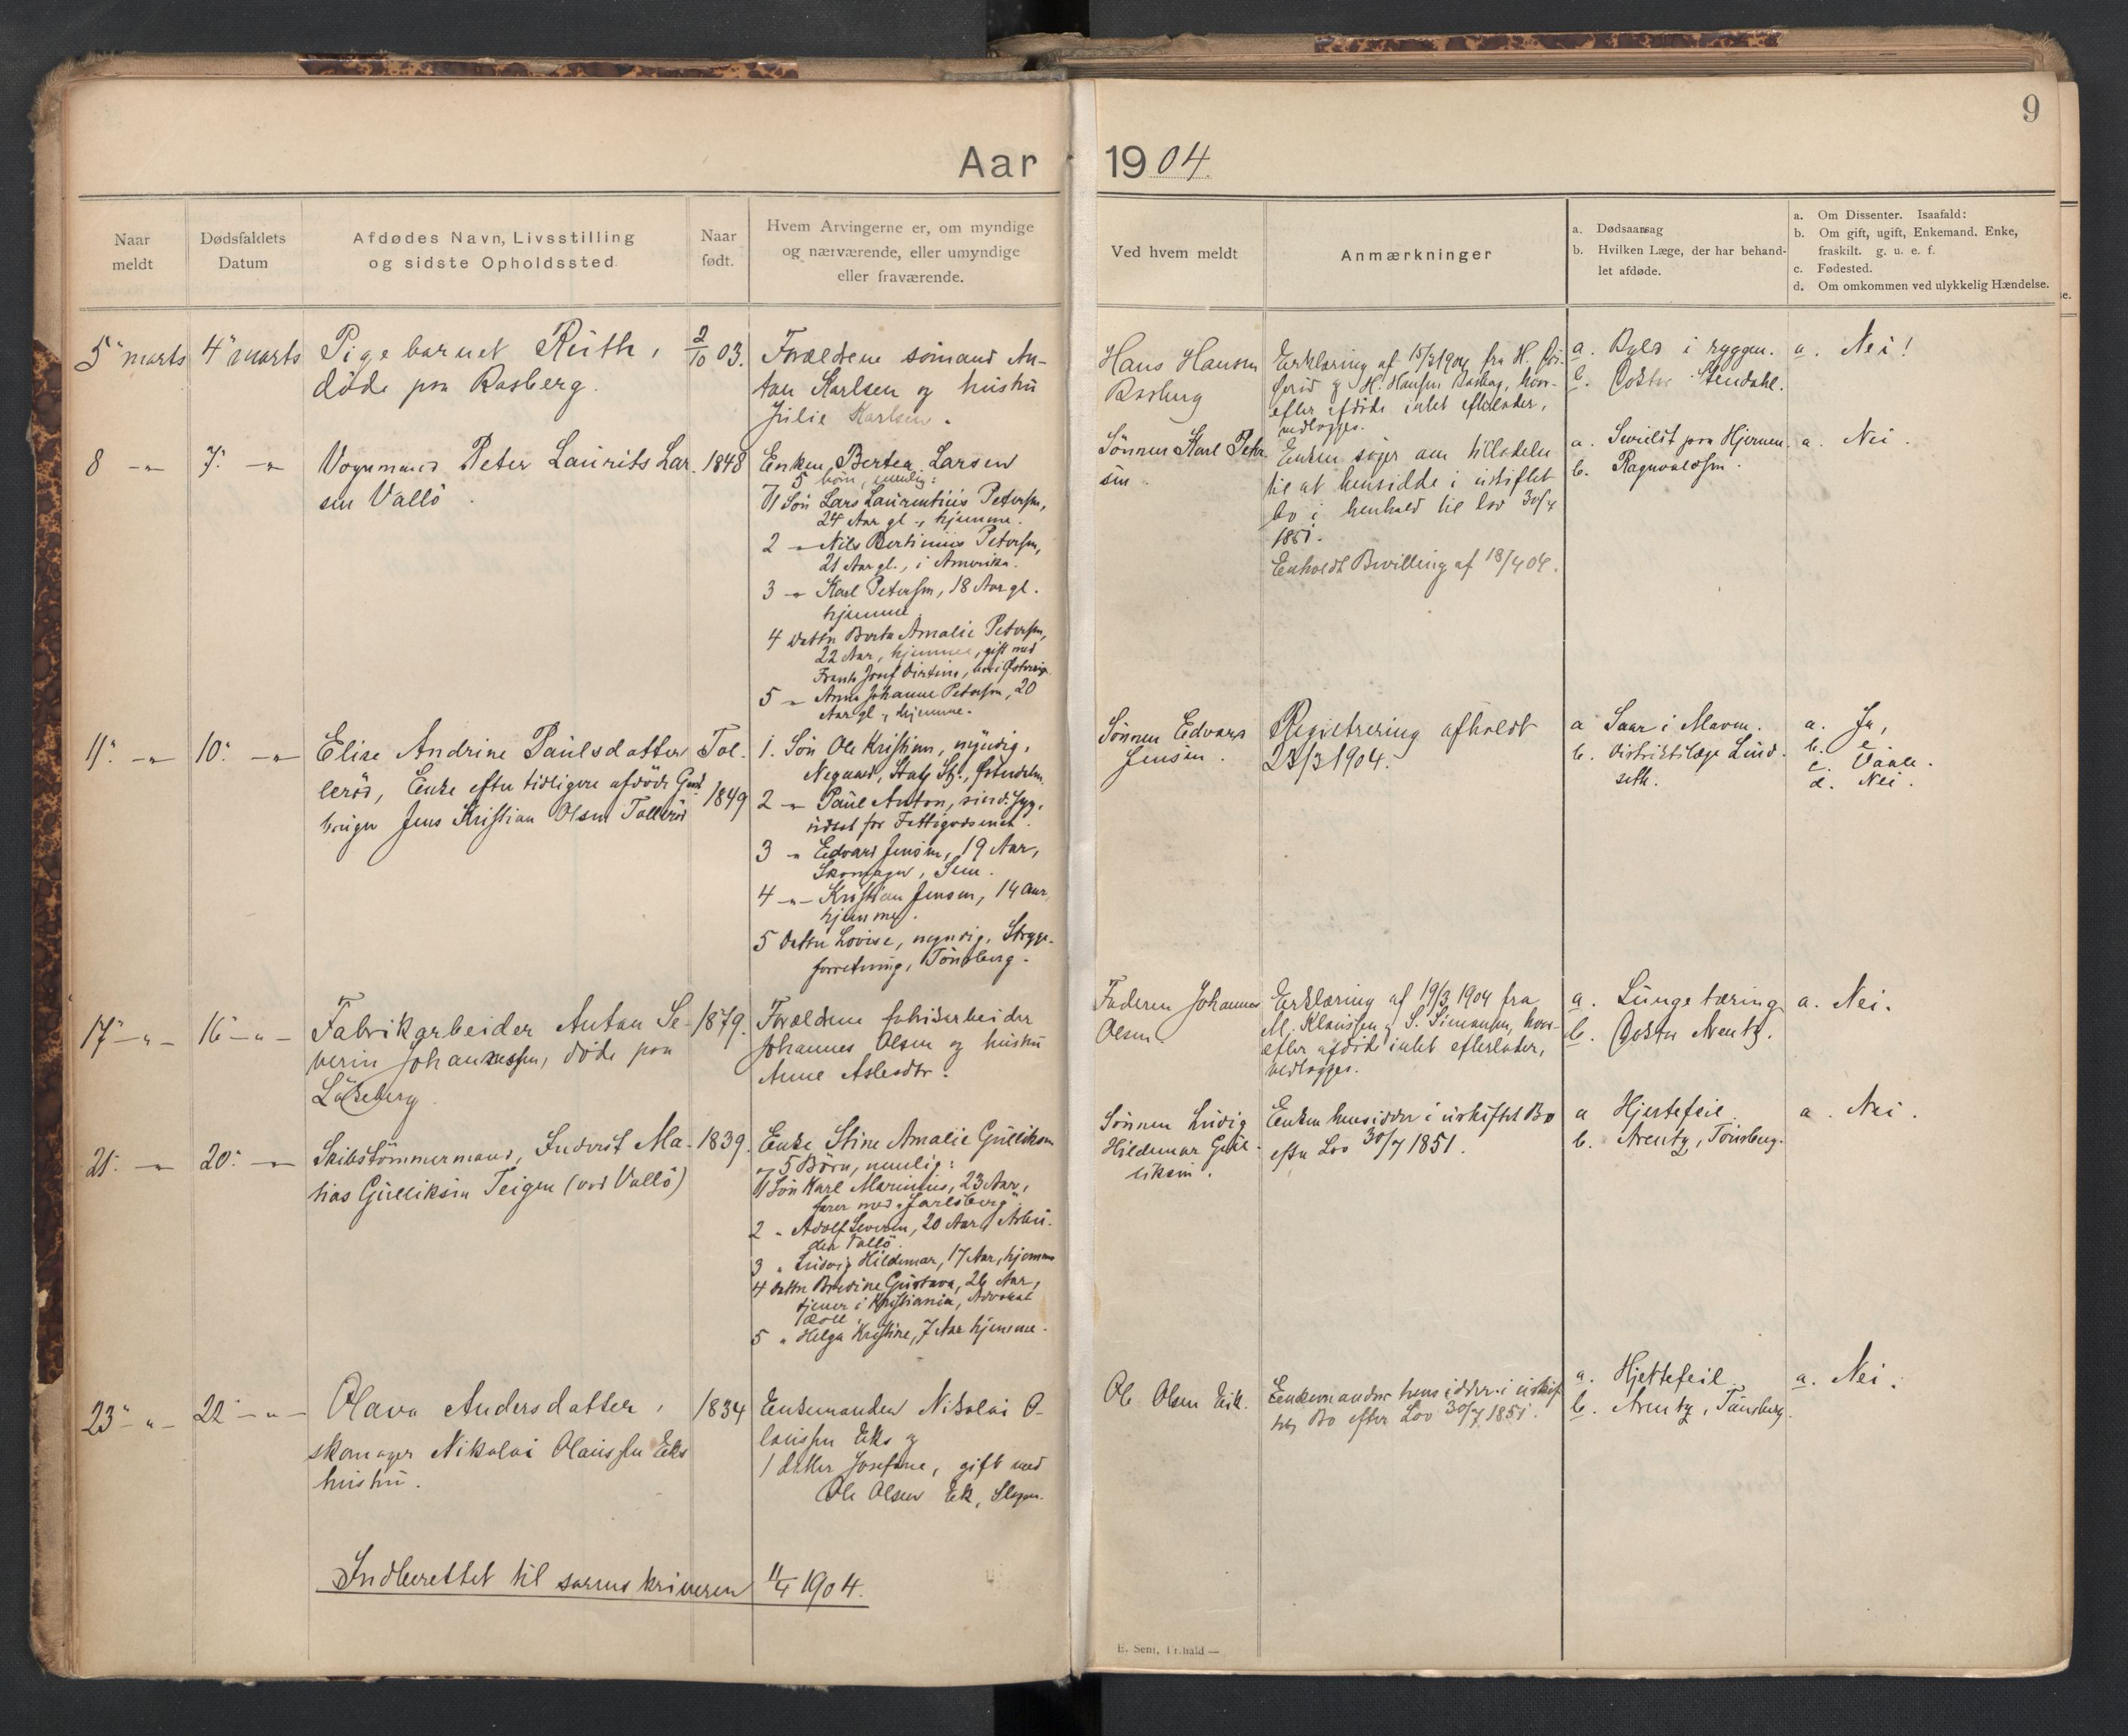 9
Aar 1904.
Naar meldt
Dødsfaldets Datum
Afdødes Navn, Livsstilling og sidste Opholdssted
Naar født.
Hvem Arvingerne er, om myndige og nærværende, eller umyndige eller fraværende.
Ved hvem meldt
Anmærkninger
a. Dødsaarsag
b. Hvilken Læge, der har behandlet afdøde.
a. Om Dissenter. Isaafald:
b. Om gift, ugift, Enkemand, Enke, fraskilt. g. u. e. f.
c. Fødested.
d. Om omkommen ved ulykkelig Hændelse.
5" marts
4" marts
Pigebarnet Ruth,
døde paa Rasberg.
2/10 03.
Forældrene sømand An-
ton Karlsen og hustru
Julie Karlsen.
Hans Hansen
Rasberg
Erklæring af 15/3 1904 fra H.
H. Hansen Rasberg, hvor-
efter afdøde intet efterlader,
vedlægges.
a. Byld i ryggen.
b. Doktor Stendahl.
a. Nei!
8 -"-
7. -"-
Vognmand Peter Laurits Lar-
sen Vallö
1848
Enken Bertea Larsen
5 børn, nemlig:
1) Søn Lars Laurentius Petersen,
24 Aar gl., hjemme.
2 -"- Nils Bertinius Petersen,
21 Aar gl., i Amerika.
3 -"- Karl Petersen, 18 Aar gl.
hjemme
4 Datter Berta Amalie Petersen,
22 Aar, hjemme, gift med
Frants Josef
5 -"- Anna Johanne Petersen, 20
Aar gl., hjemme.
Sønnen Karl Peter
sen.
Enken søger om tilladelse
til at hensidde i uskiftet
bo i henhold til lov 30/7
1851.
Enholdt Bevilling af 18/4 04.
a. Svulst paa Hjernen.
b. Ragnvaldsen.
a. Nei.
11" -"-
10" -"-
Elise Andrine Paulsdatter Tol-
lerød, Enke efter tidligere afdøde Gard
bruger Jens Kristian Olsen Tollerød
1849
1. Søn Ole Kristian, myndig,
Negaard,
2 -"- Paul Anton, sindssyg,
udsat for Fattigvæsenet.
3 -"- Edvard Jensen, 19 Aar,
Skomager, Sem.
4 -"- Kristian Jensen, 14 Aar,
hjemme.
5 Datter Lovise, myndig, Stryge-
forretning, Tönsberg.
Sønnen Edvard
Jensen.
Registrering afholdt
23/3 1904.
a Saar i Maven.
b. Distriktslæge Lind-
seth.
a. Ja,
b. e
c. Vaale.
d. Nei.
17" -"-
16 -"-
Fabrikarbeider Anton Se-
verin Johannessen, døde paa
Løkeberg.
1879.
Forældrene fabrikarbeider
Johannes Olsen og hustru
Anne Aslesdtr.
Faderen Johannes
Olsen
Erklæring af 19/3 1904 fra
M. Klaussen og S. Simonsen, hvor-
efter afdøde intet efterlader,
vedlægges.
a. Lungetæring
b. Doktor Arentz.
a. Nei.
21. -"-
20. -"-
Skibstömmermand, Inderst Ma-
tias Gulliksen Teigen (ved Vallö)
1839.
Enke Stine Amalie Gulliksen
5 Børn, nemlig:
1) Søn Karl Marinius, 23 Aar,
farer med "Jarlsberg".
2 " Adolf Severin, 20 Aar, Arbei-
der Vallö.
3 " Ludvig Hildemar, 17 Aar, hjemme
4 Datter Bredine Gustava, 26 Aar,
tjener i Kristiania, Advokat
5 " Helga Kristine, 7 Aar hjemme.
Sønnen Ludvig
Hildemar Gul-
liksen.
Enken hensidder i uskiftet Bo
efter Lov 30/7 1851.
a Hjertefeil.
b. Arentz, Tönsberg.
a. Nei.
23" -"-
22" -"-
Olava Andersdatter,
skomager Nikolai Olaussen Eks
hustru.
1834
Enkemanden Nikolai O-
laussen Eks og
1 datter Josefine, gift med
Ole Olsen Ek, Slagen.
Ole Olsen Eik.
Enkemanden hensidder i uskif-
tet Bo efter Lov 30/7 1851.
a. Hjertefeil.
b. Arentz, Tönsberg.
a. Nei.
Indberettet til sorenskriveren 11/4 1904.